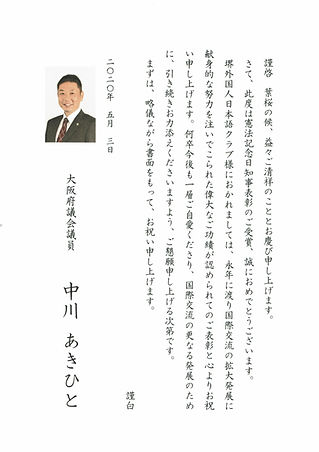 謹啓　葉桜の候、益々ご清祥のこととお慶び申し上げます。
さて、此度は憲法記念日知事表彰のご受賞、誠におめでとうございます。
堺外国人日本語クラブ様におかれましては、永年に渡り国際交流の拡大発展に
献身的な努力を注いでこられた偉大なご功績が認められてのご表彰と心よりお祝
い申し上げます。何卒今後も一層ご自愛くださり、国際交流の更なる発展のため
に、引き続きお力添えくださいますよう、ご懇願申し上げる次第です。
まずは、略儀ながら書面をもって、お祝い申し上げます。
謹白
二〇二〇年　五月　三日
大阪府議会議員　中川　あきひと